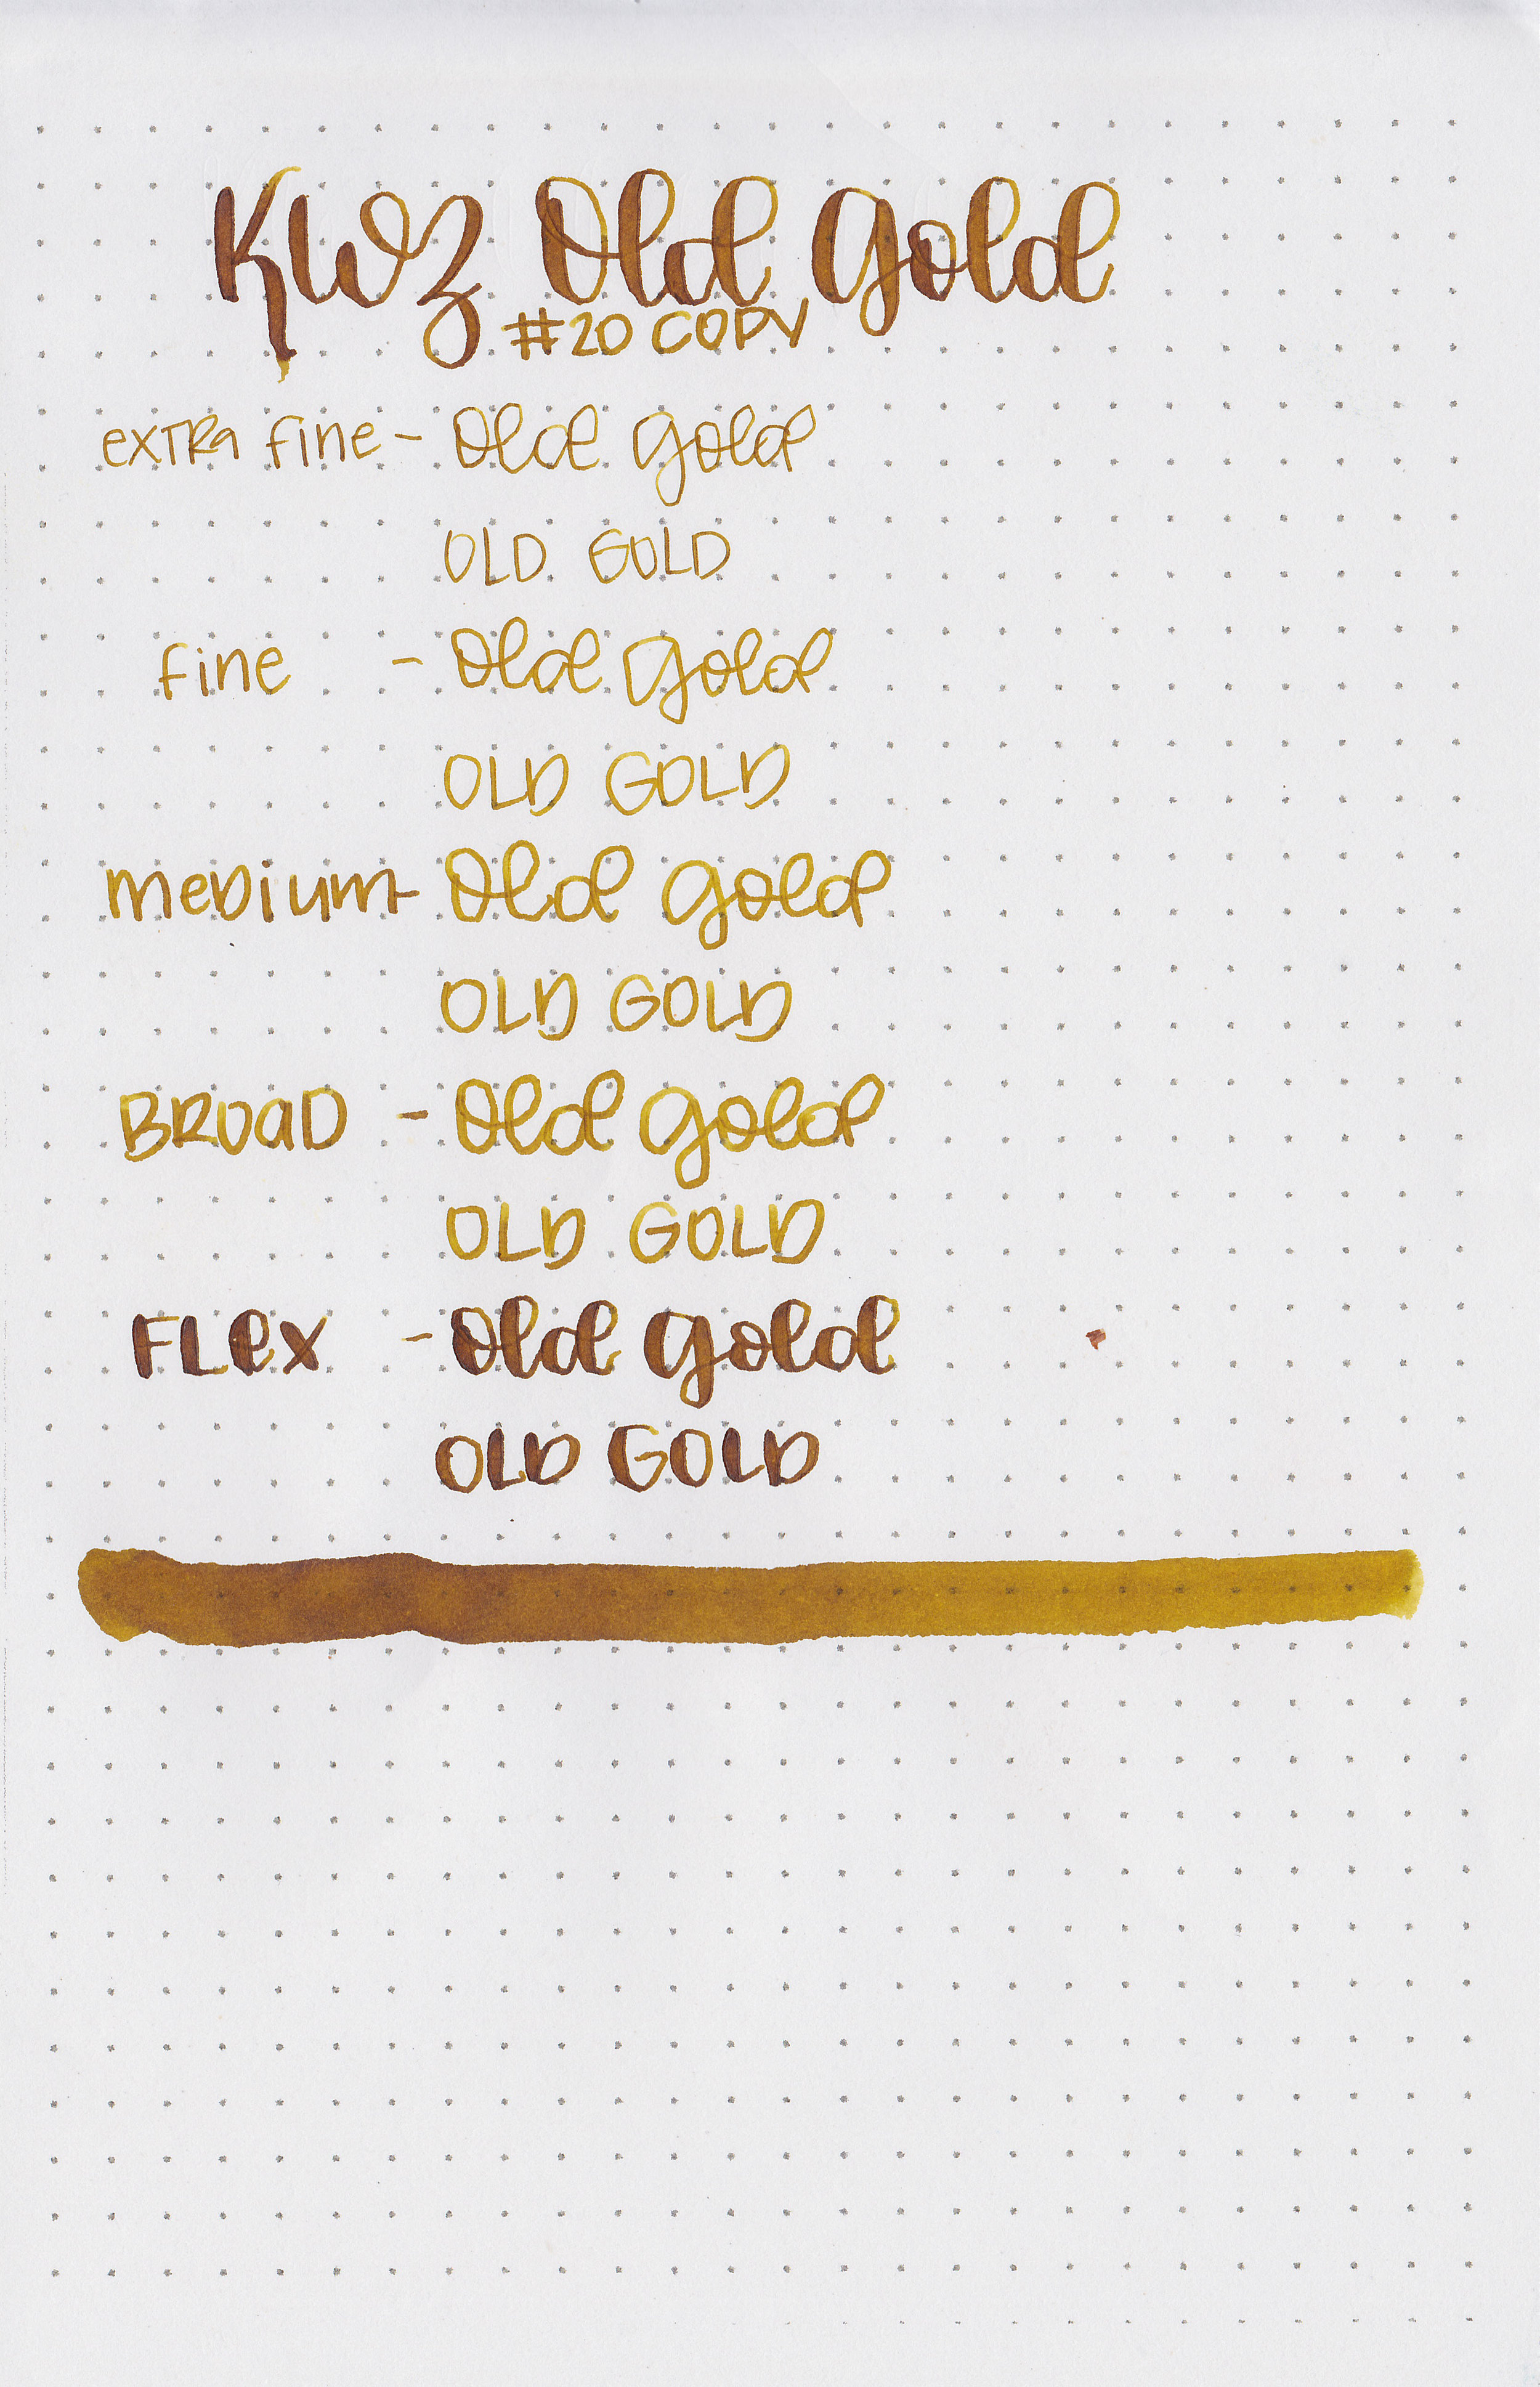 KWZ Old Gold
#20 COPY
extra fine - Old Gold
OLD GOLD
fine - Old Gold
OLD GOLD
medium - Old Gold
OLD GOLD
BROAD - Old Gold
OLD GOLD
FLEX - Old Gold
OLD GOLD